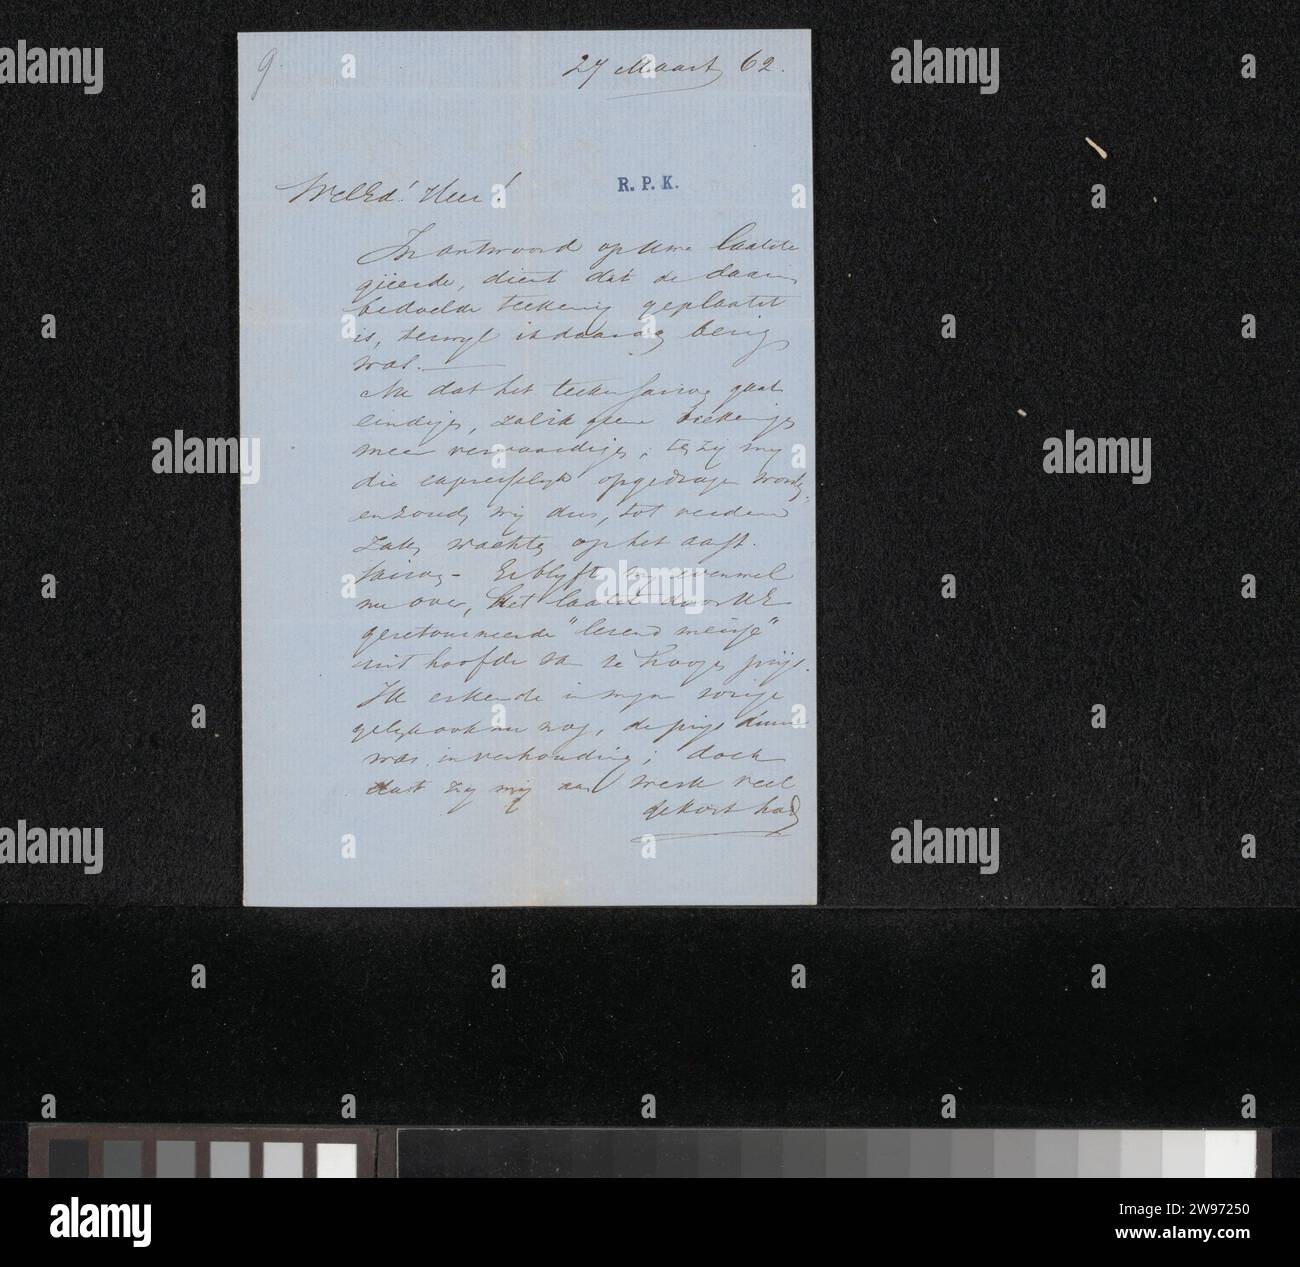 9.
27 Maart 62.
R. P. K.
WelEd! Heer!
In antwoord op Uwe laatste
geëerde, dient dat de daarin
bedoelde teekening geplaatst
is, terwyl ik daarop bezig
was.
Nu dat het teekensaison gaat
eindigen, zal ik geene teekeningen
meer vervaardigen; tenzy my
die expresselyk opgedragen worden,
en zouden wy dus, tot verdere
zaken wachten op het aanst.
saison - Er blyft my evenwel
nu over, het laatst door UE
geretourneerde "lezend meisje"
uit hoofde van te hoogen prijs.
Ik erkende in mijn vorige
gelyk ook nu nog, de prijs duur
was in verhouding; doch
dat zy my aan werk veel
gekost had
alamy
Image ID: 2W97250
www.alamy.com